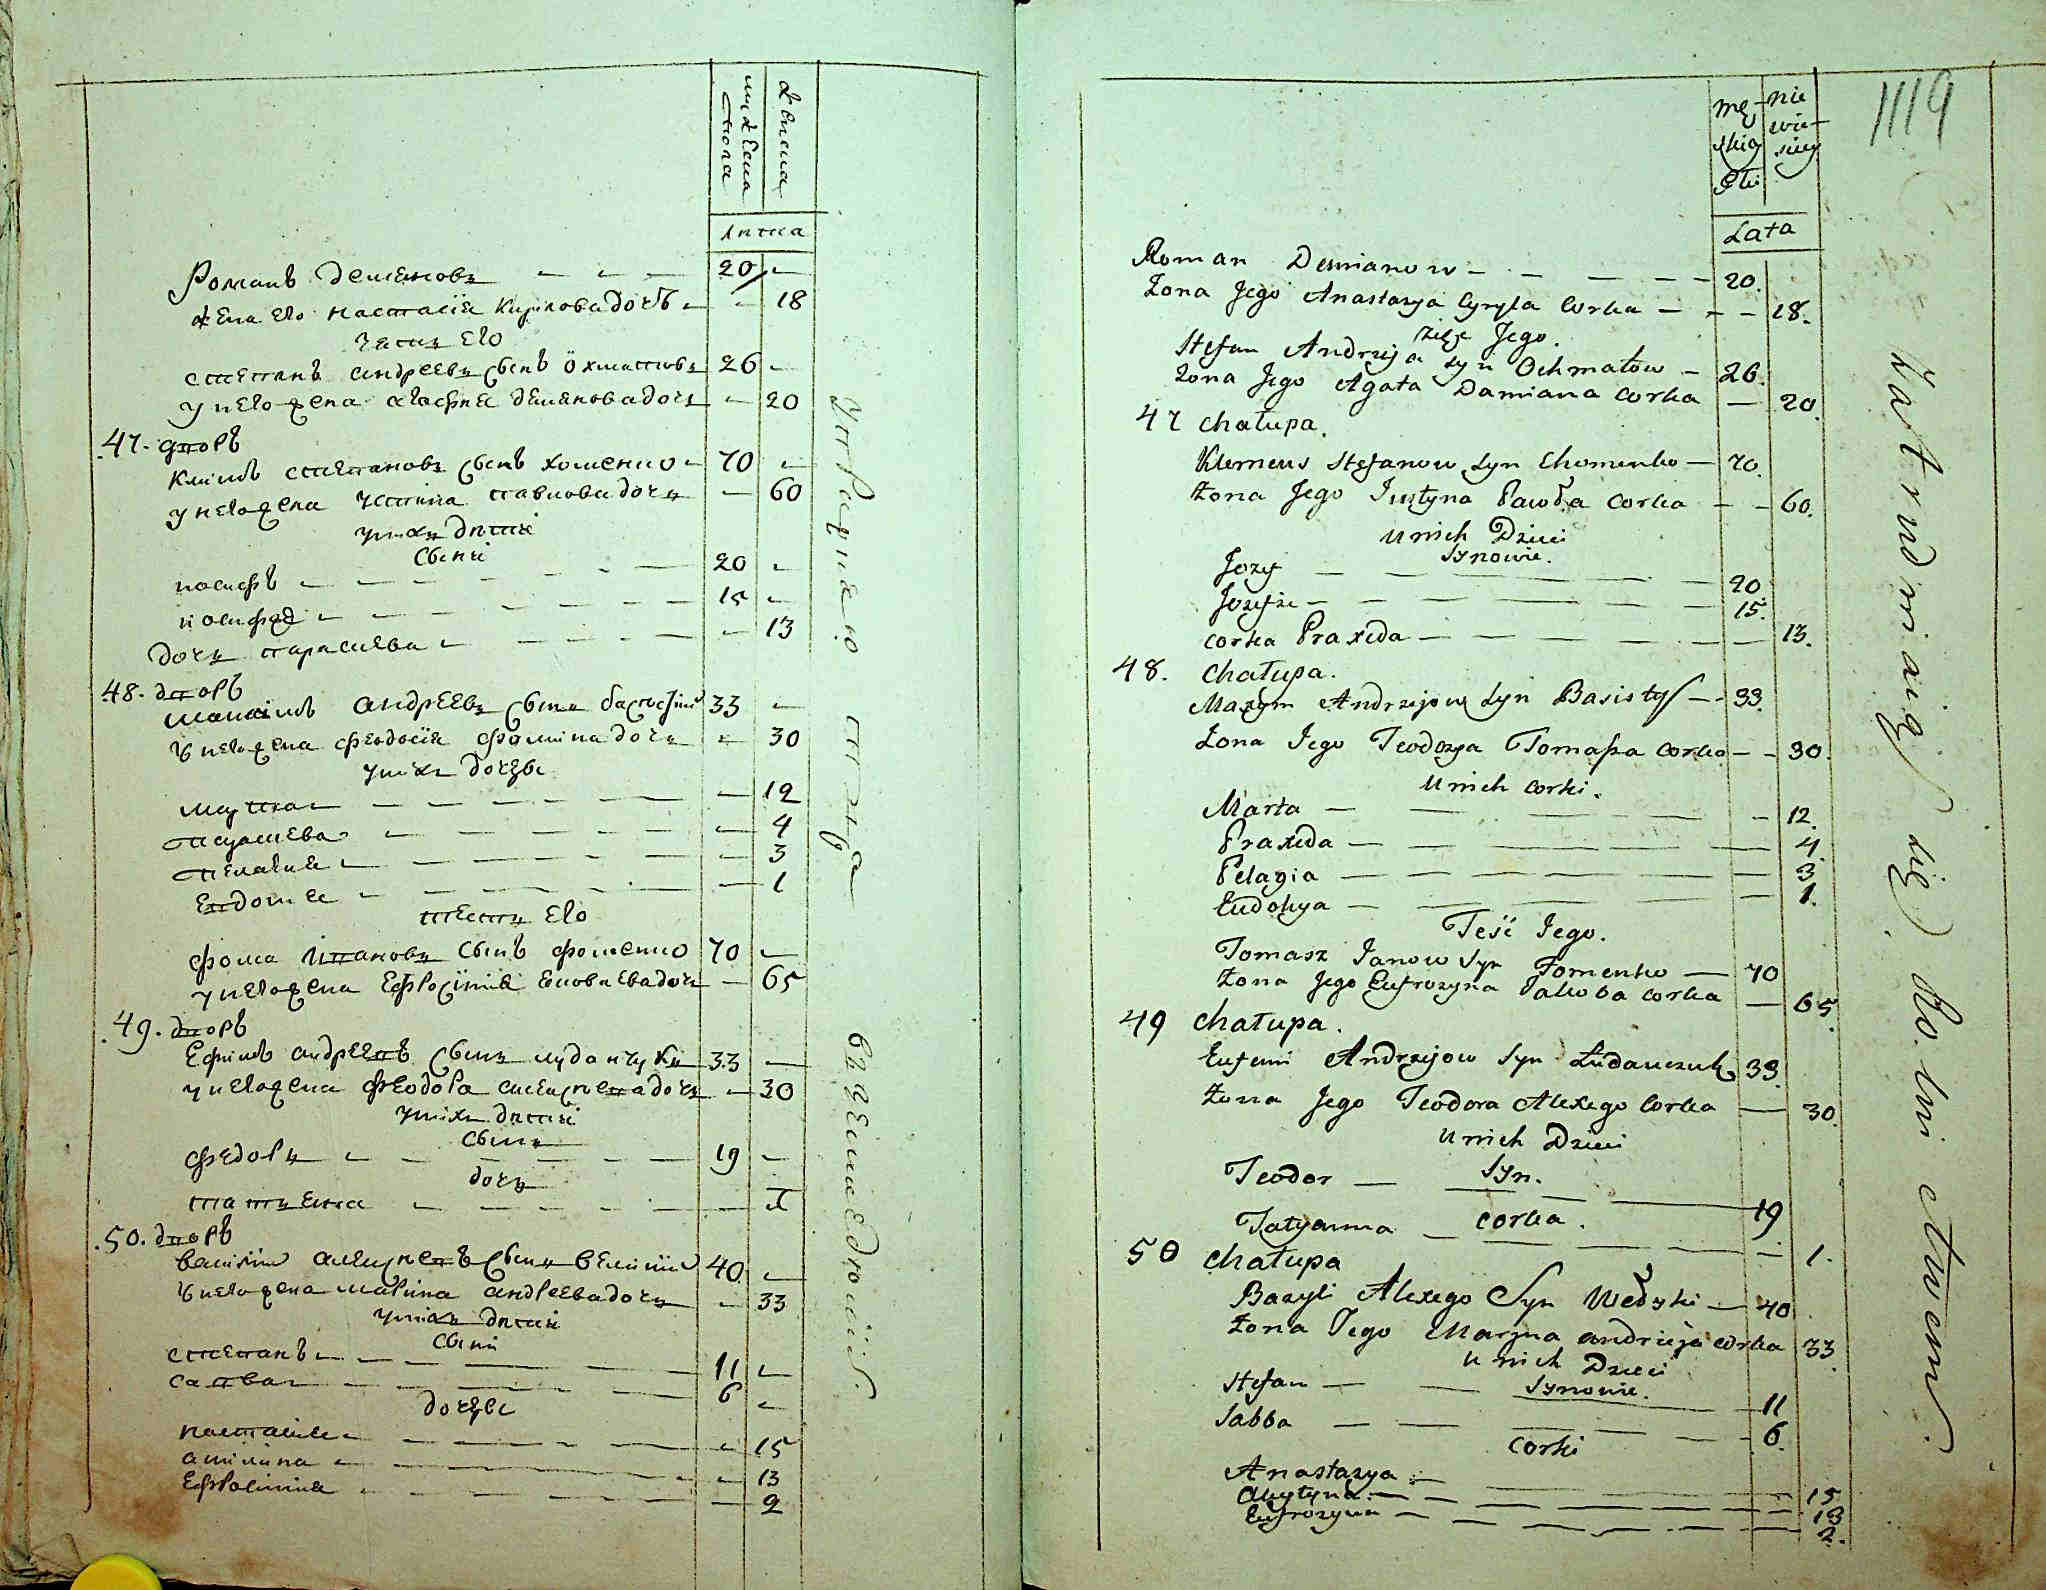 мужеска
пола
женска
лѣта
Романъ Демяновъ — — — 20 —
жена его Настасія Кирилова дочъ — — 18
зять его
Степанъ Андреевъ сынъ Охматовъ 26 —
у него жена Агафия Демянова дочь — 20
47. дворъ
Климъ Степановъ сынъ Хоменко — 70 —
у него жена Устина Павлова дочь — 60
у нихъ дѣти
сыни
Иосифъ — — — 20 —
Иосифъ — — — 15 —
дочь Парасиева — — — 13
48. дворъ
Максимъ Андреевъ сынъ Басистий 33 —
у него жена Феодосія Фомина дочь — 30
у нихъ дочери
Марта — — — 12
Парасиева — — — 4
Пелагия — — — 3
Евдокия — — — 1
тесть его
Фома Ивановъ сынъ Фоменко 70 —
у него жена Ефросиния Яковлева дочь — 65
49. дворъ
Ефимъ Андреевъ сынъ 33 —
у него жена Феодора Алексеева дочь — 30
у нихъ дѣти
сынъ
Федоръ — — — 19 —
дочь
Татьяна — — — 1
50. дворъ
Василий Алексеевъ сынъ 40 —
у него жена Марина Андреева дочь — 33
у нихъ дѣти
сыни
Степанъ — — — 11 —
Савва — — — 6 —
дочери
Настасия — — — 15
Акилина — — — 13
Ефросиния — — — 2
1119
Mę-
skiey
Płci
nie
wie-
sciey
Lata
Roman Demianow — — — 20.
Żona Jego Anastazya Cyryla Corka — — — 18.
zięć Jego.
Stefan Andrzeja syn Ochmatow — 26.
Żona Jego Agata Damiana Corka — 20.
47 Chałupa.
Klemens Stefanow Syn Chomenko — 70.
Żona Jego Justyna Pawła Corka — — 60.
U nich Dzieci
Synowie.
Jozef — — — 20.
Jozef — — — 15.
Corka Praxeda — — — 13.
48. Chałupa.
Maxym Andrzejow Syn Basistyj — — 33.
Żona Jego Teodozya Tomasza Corka — — 30.
U nich Corki.
Marta — — — 12.
Praxeda — — — 4.
Pelagia — — — 3
Eudokya — — — 1.
Teść Jego.
Tomasz Janow Syn Fomenko — 70
Żona Jego Eufrozyna Jakoba Corka — 65.
49 Chałupa.
Eufemi Andrzejow Syn 33.
Żona Jego Teodora Alexego Corka — 30.
U nich Dzieci
Syn.
Teodor — — — 19
Corka.
Tatyanna — — — 1.
50 Chałupa
Bazyli Alexego Syn — 40
Żona Jego Maryna Andrzeja Corka 33.
U nich Dzieci
Synowie.
Stefan — — — 11
Sabba — — — 6.
Corki
Anastazya — — — 15
Akylyna — — — 13
Eufrozyna — — — 2.